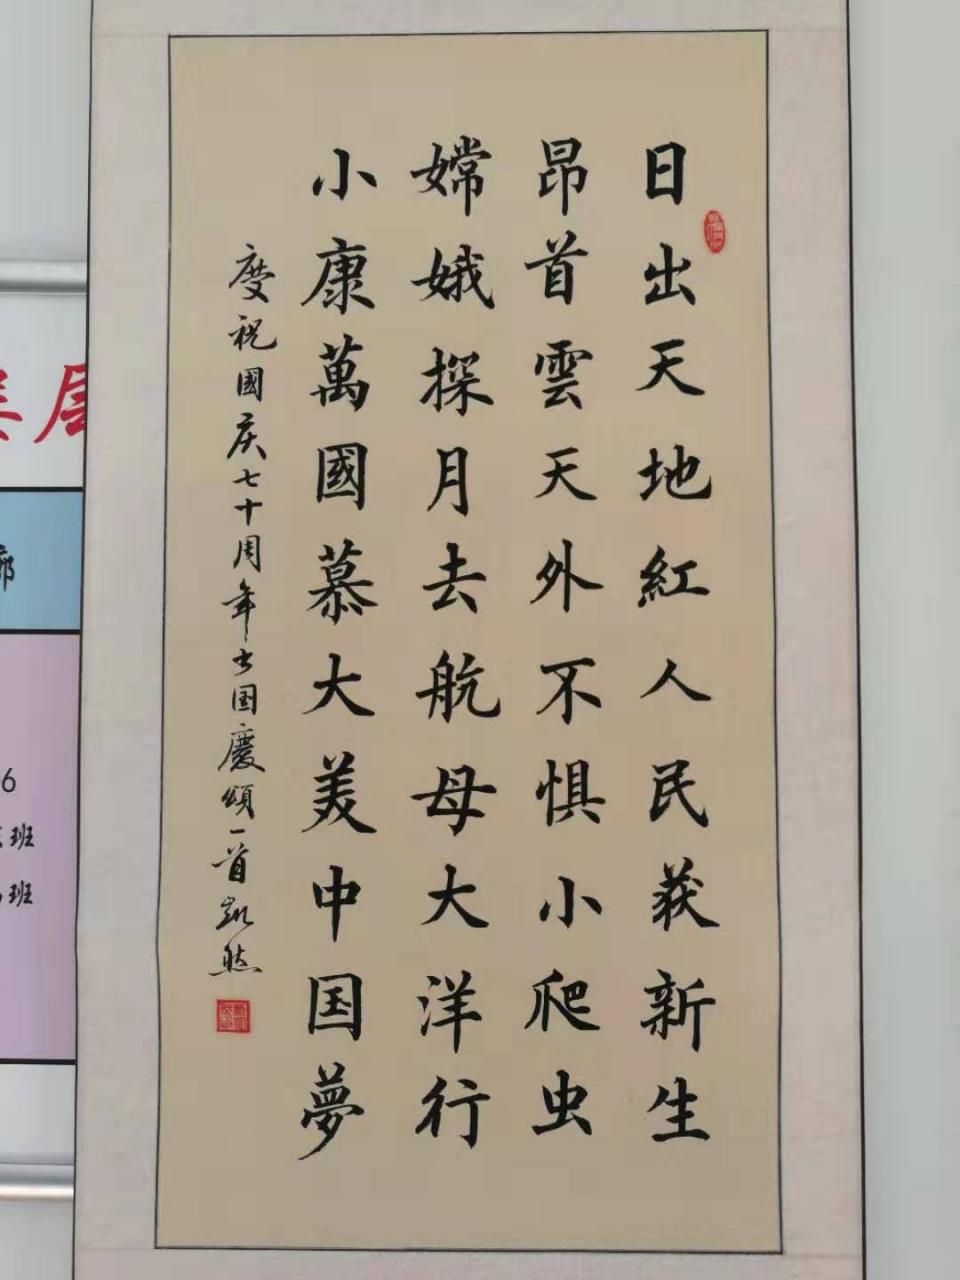 日出天地紅人民获新生
昂首雲天外不惧小爬虫
嫦娥探月去航母大洋行
小康萬國慕大美中国夢
慶祝國庆七十周年书国慶頌一首凯然
6
班
班